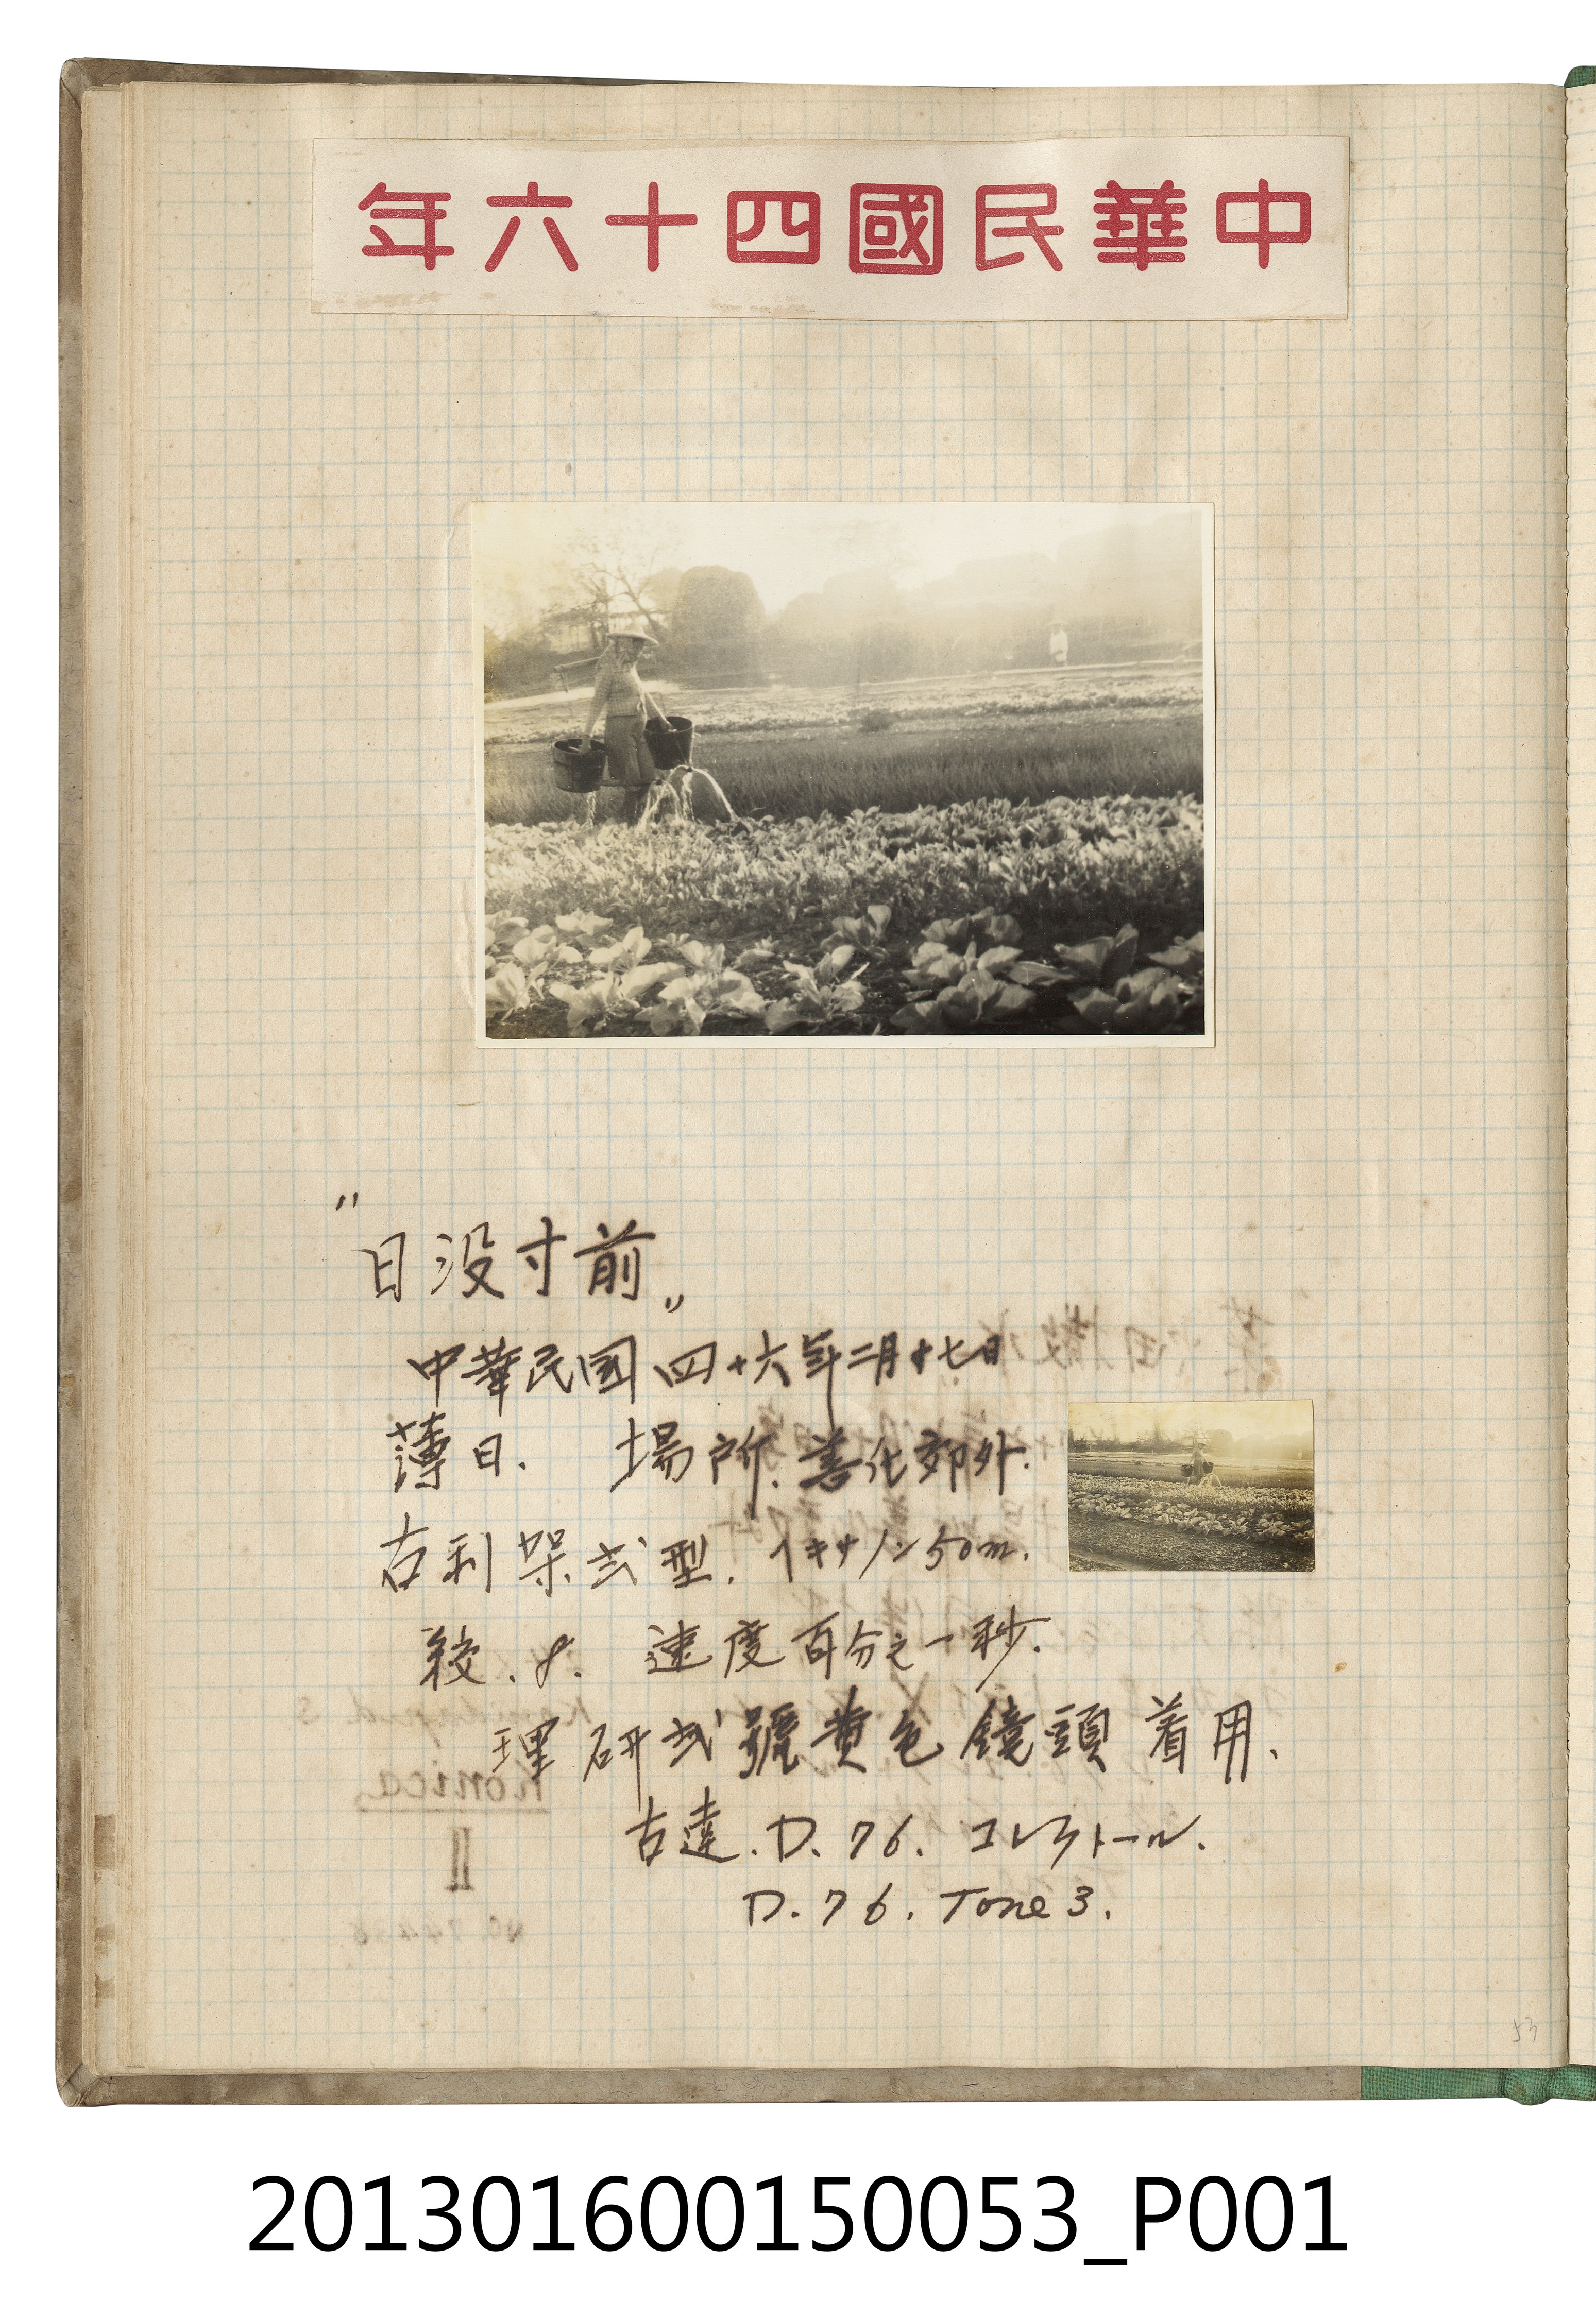 中華民國四十六年
"日没寸前"
中華民國四十六年二月十七日
薄日. 場所. 善化郊外.
古利架弍型. ヘキサノン50m.
絞.8. 速度百分之一秒.
理研弍號黄色鏡頭着用、
古達.D.76. コレクトール.
D.76. Tone 3.
53
201301600150053_P001